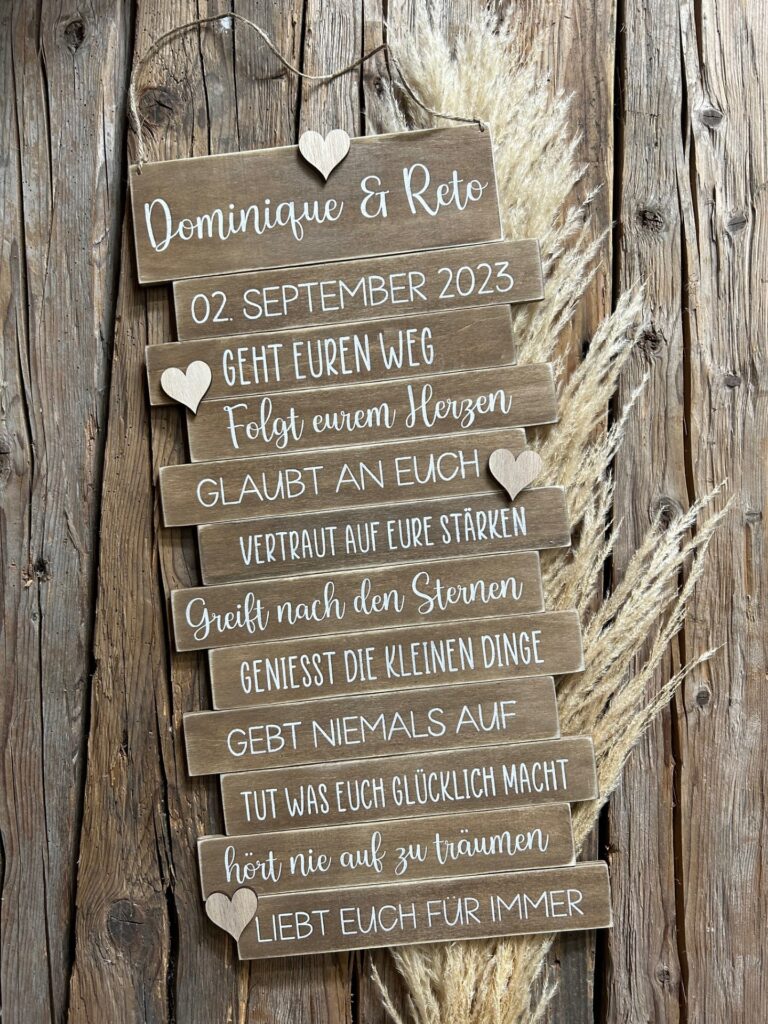 Dominique & Reto
02. SEPTEMBER 2023
GEHT EUREN WEG
Folgt eurem Herzen
GLAUBT AN EUCH
VERTRAUT AUF EURE STÄRKEN
Greift nach den Sternen
GENIESST DIE KLEINEN DINGE
GEBT NIEMALS AUF
TUT WAS EUCH GLÜCKLICH MACHT
hört nie auf zu träumen
LIEBT EUCH FÜR IMMER